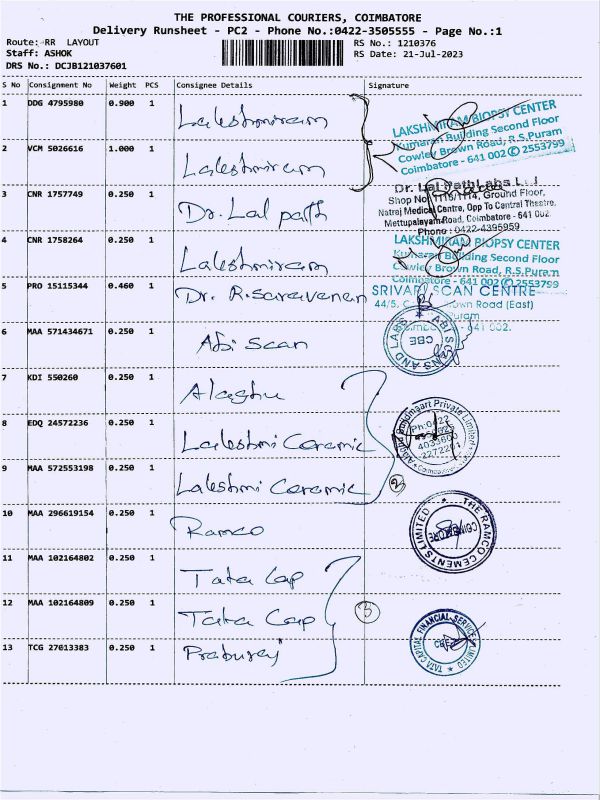 THE PROFESSIONAL COURIERS, COIMBATORE
Delivery Runsheet - PC2 - Phone No.:0422-3505555 - Page No.:1
Route: RR LAYOUT
RS No.: 1210376
Staff: ASHOK
RS Date: 21-Jul-2023
DRS No.: DCJB121037601
S No Consignment No Weight PCS Consignee Details Signature
1 DDG 4795980 0.900 1 Lakshmiram
LAKSHMIRAM BIOPSY CENTER
Kumaran Building Second Floor
Cowley Brown Road, R.S.Puram
Coimbatore - 641 002 ✆ 2553799
2 VCM 5026616 1.000 1 Lakshmiram
3 CNR 1757749 0.250 1 Dr. Lal path
Dr. Lal PathLabs
Shop No. 1115/1114, Ground Floor,
Natraj Medical Centre, Opp To Central Theatre,
Mettupalayam Road, Coimbatore - 641 002
Phone : 0422-4395959
4 CNR 1758264 0.250 1 Lakshmiram
LAKSHMIRAM BIOPSY CENTER
Kumaran Building Second Floor
Cowley Brown Road, R.S.Puram
Coimbatore - 641 002 ✆ 2553799
5 PRO 15115344 0.460 1 Dr. R. Saravanan
SRIVARI SCAN CENTRE
44/5, Brown Road (East)
641 002.
6 MAA 571434671 0.250 1 Abi Scan
ABI SCANS AND LABS
CBE
7 KDI 550260 0.250 1
8 EDQ 24572236 0.250 1 Lakshmi Ceramic
Buildmaart Private Limited
Ph:0422
2272201
9 MAA 572553198 0.250 1 Lakshmi Ceramic
2
10 MAA 296619154 0.250 1 Ramco
THE RAMCO CEMENTS LIMITED
COIMBATORE
11 MAA 102164802 0.250 1 Tata Cap
12 MAA 102164809 0.250 1 Tata Cap
3
TATA CAPITAL FINANCIAL SERVICES LIMITED
CBE
13 TCG 27013383 0.250 1